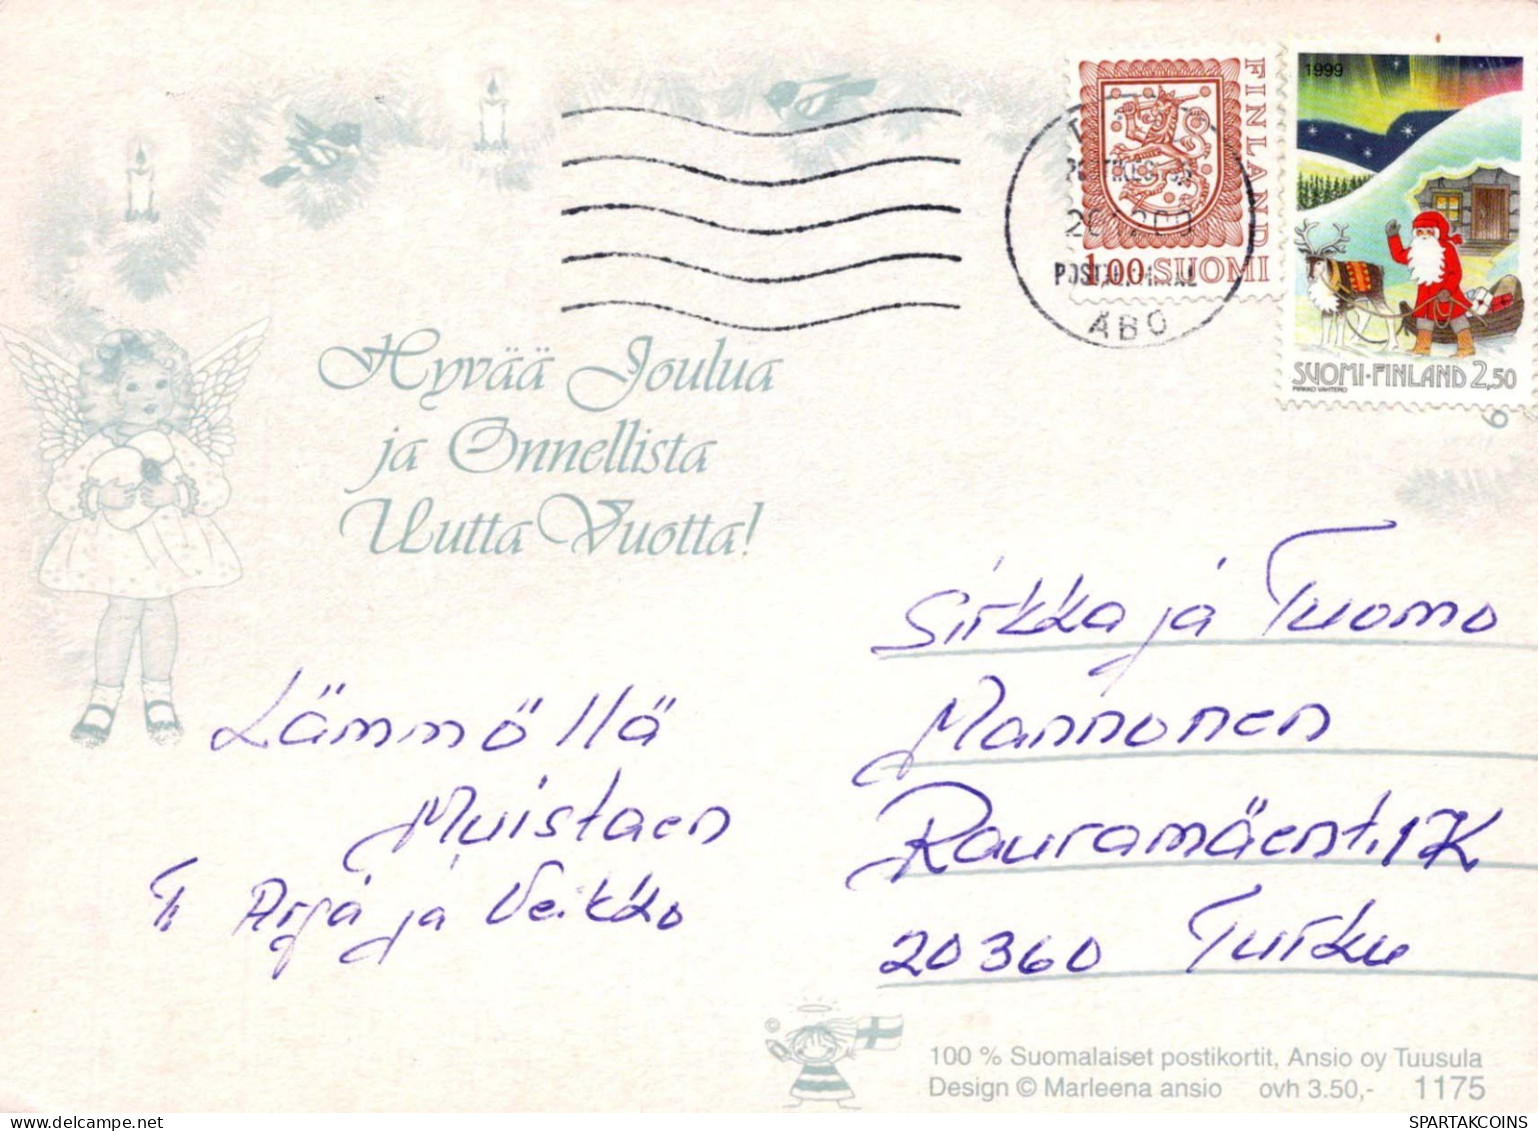 1999
FINLAND
1,00 SUOMI
SUOMI-FINLAND 2,50
PIRKKO VAHTERO
ÅBO
Hyvää Joulua
ja Onnellista
Uutta Vuotta!
Sirkka ja Tuomo
Mannonen
Rauramäent. 1 K
20360 Turku
Lämmöllä
Muistaen
T: Arja ja Veikko
100 % Suomalaiset postikortit, Ansio oy Tuusula
Design © Marleena ansio ovh 3.50,- 1175
SPARTAKCOINS